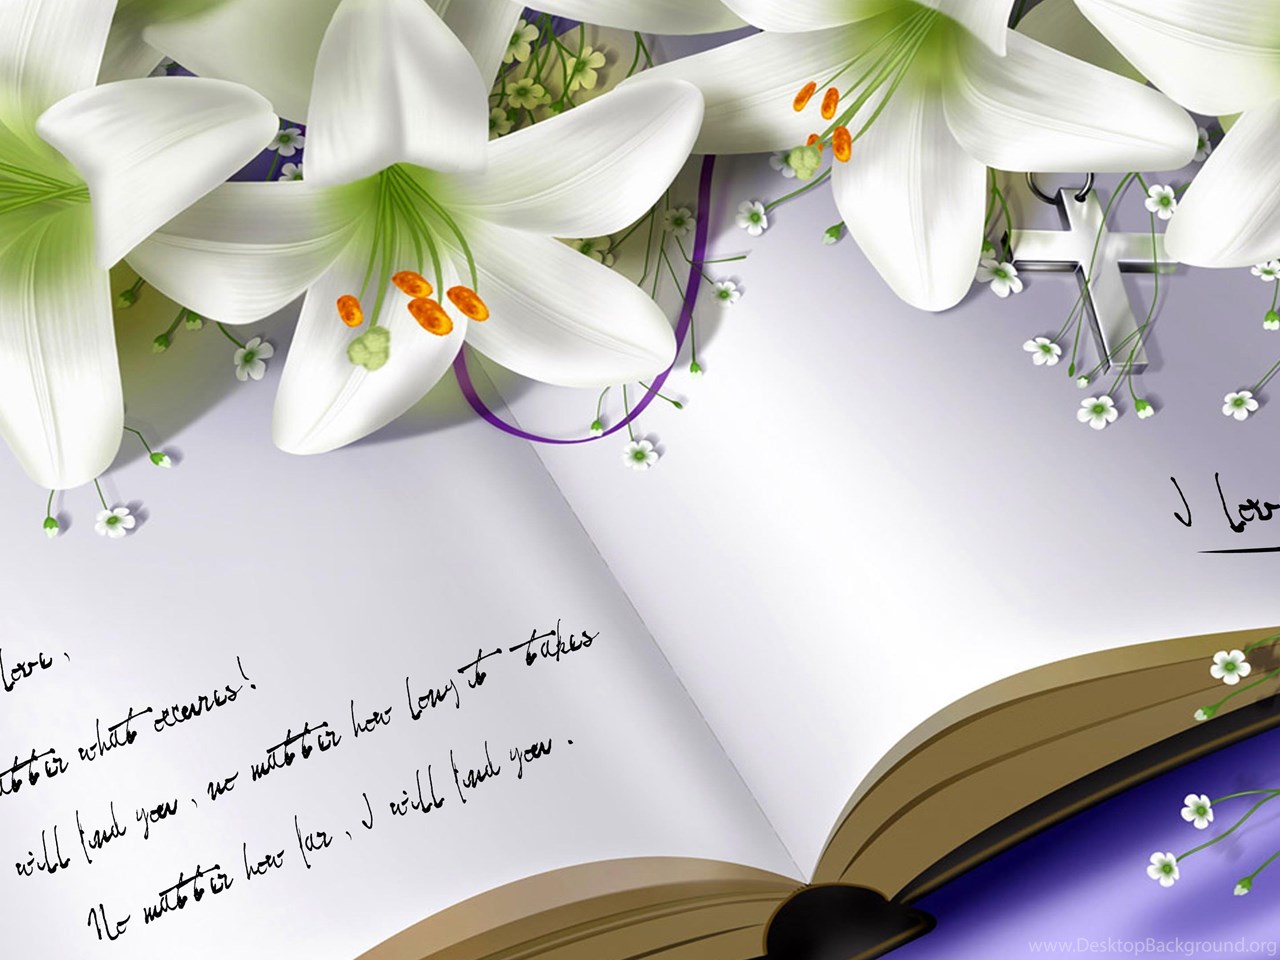 love,
what occures!
will find you, no matter how long it takes
No matter how far, I will find you.
I Love
www.DesktopBackground.org